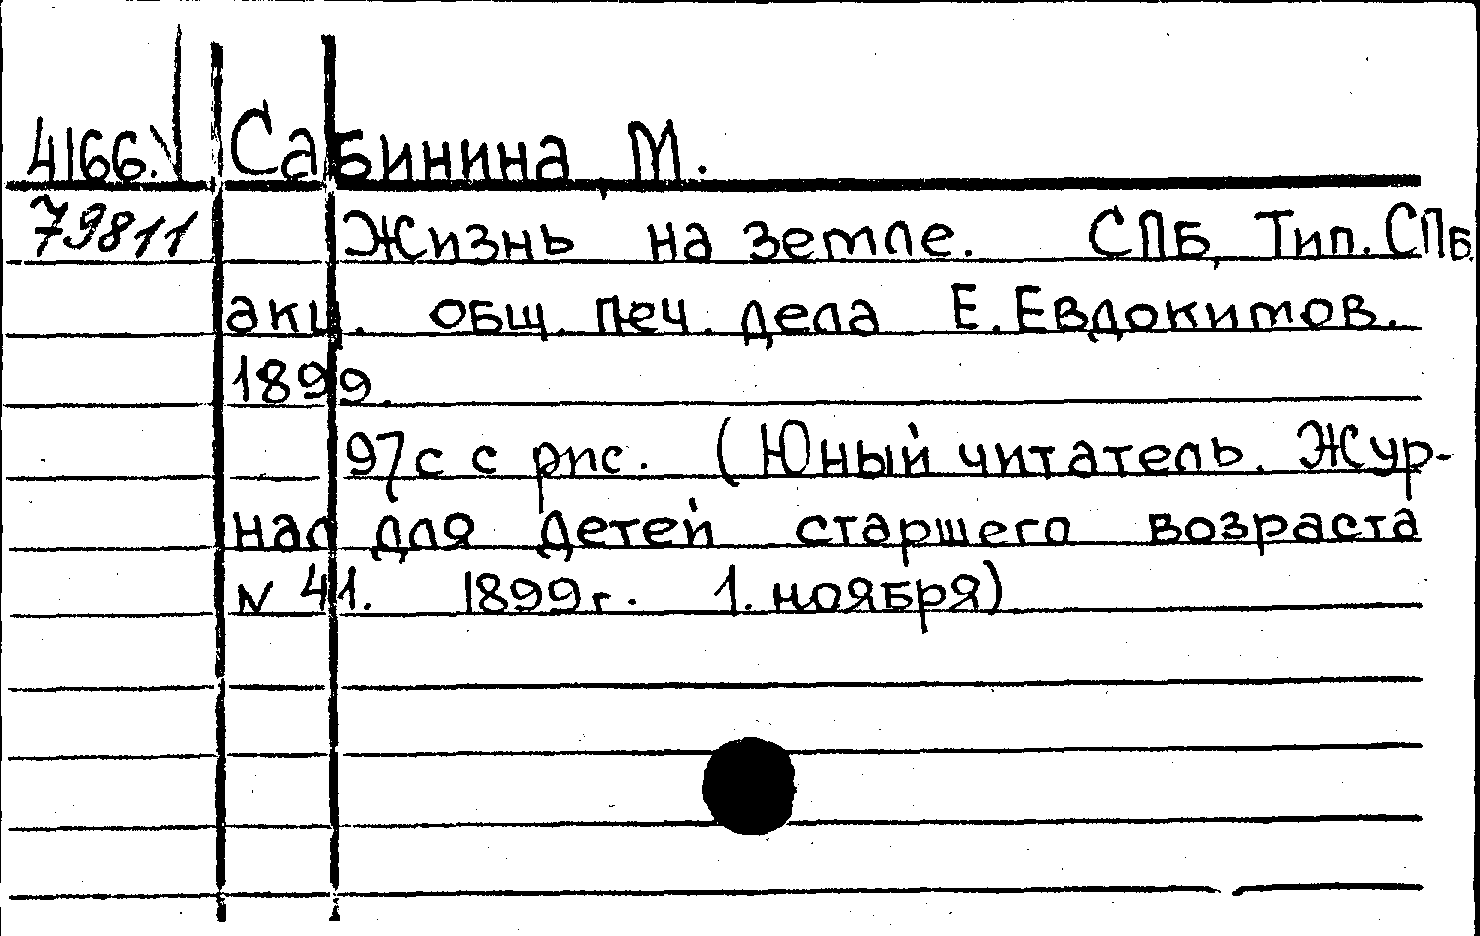 4166.\| Сабинина, М.
79811 Жизнь на земле. СПБ, Тип. СПБ
акц. общ. печ. дела Е. Евдокимов.
1899.
97с с рис. (Юный читатель. Жур-
нал для детей старшего возраста
N 41. 1899г. 1. ноября)